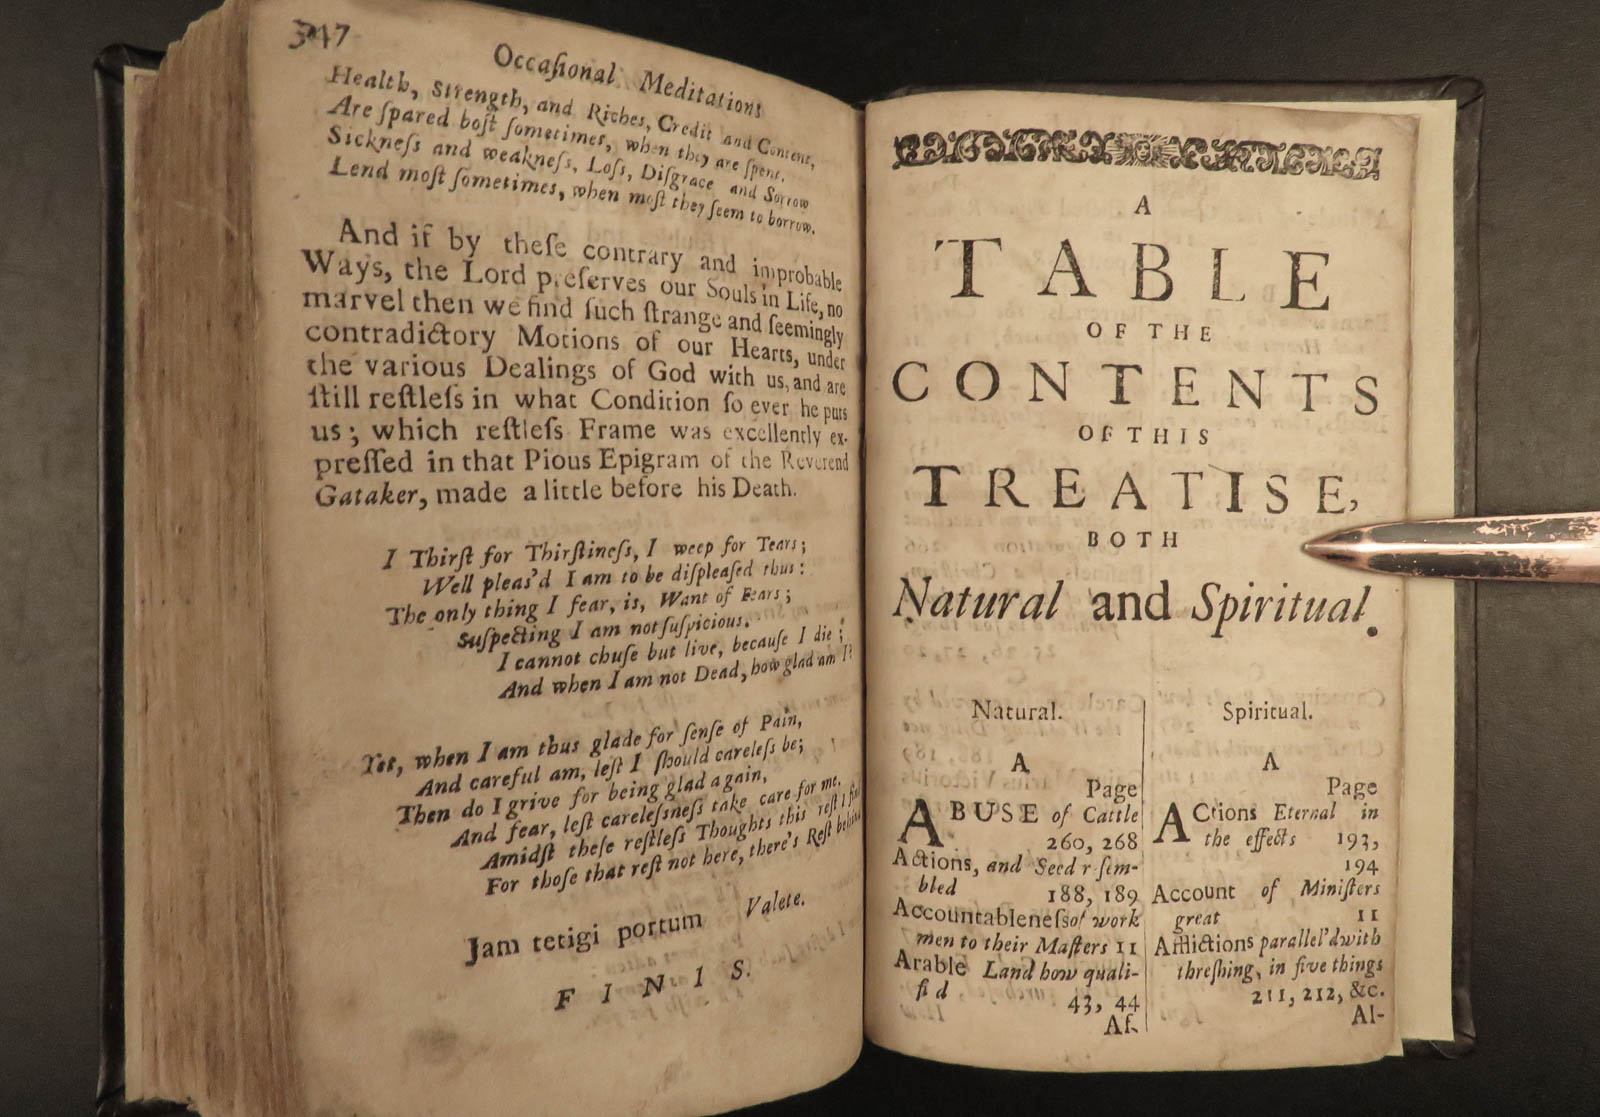 347
Occaſional Meditations
Health, Strength, and Riches, Credit and Content,
Are ſpared boſt ſometimes, when they are ſpent.
Sickneſs and weakneſs, Loſs, Diſgrace and Sorrow
Lend moſt ſometimes, when moſt they ſeem to borrow.
And if by theſe contrary and improbable
Ways, the Lord preſerves our Souls in Life, no
marvel then we find ſuch ſtrange and ſeemingly
contradictory Motions of our Hearts, under
the various Dealings of God with us, and are
ſtill reſtleſs in what Condition ſo ever he puts
us; which reſtleſs Frame was excellently ex-
preſſed in that Pious Epigram of the Reverend
Gataker, made a little before his Death.
I Thirſt for Thirſtineſs, I weep for Tears;
Well pleas'd I am to be diſpleaſed thus:
The only thing I fear, is, Want of Fears;
Suſpecting I am not ſuſpicious.
I cannot chuſe but live, becauſe I die;
And when I am not Dead, how glad am I?
Yet, when I am thus glade for ſenſe of Pain,
And careful am, leſt I ſhould careleſs be;
Then do I grive for being glad again,
And fear, leſt careleſsneſs take care for me.
Amidſt theſe reſtleſs Thoughts this reſt I find
For thoſe that reſt not here, there's Reſt behind
Jam tetigi portum Valete.
FINIS.
A
TABLE
OF THE
CONTENTS
OF THIS
TREATISE,
BOTH
Natural and Spiritual.
Natural.
A
Page
ABUSE of Cattle
260, 268
Actions, and Seed r ſem-
bled 188, 189
Accountableneſs of work
men to their Maſters 11
Arable Land how quali-
fi d 43, 44
Aſ-
Spiritual.
A
Page
ACtions Eternal in
the effects 193,
194
Account of Miniſters
great 11
Afflictions parallel'd with
threſhing, in five things
211, 212, &c.
Al-